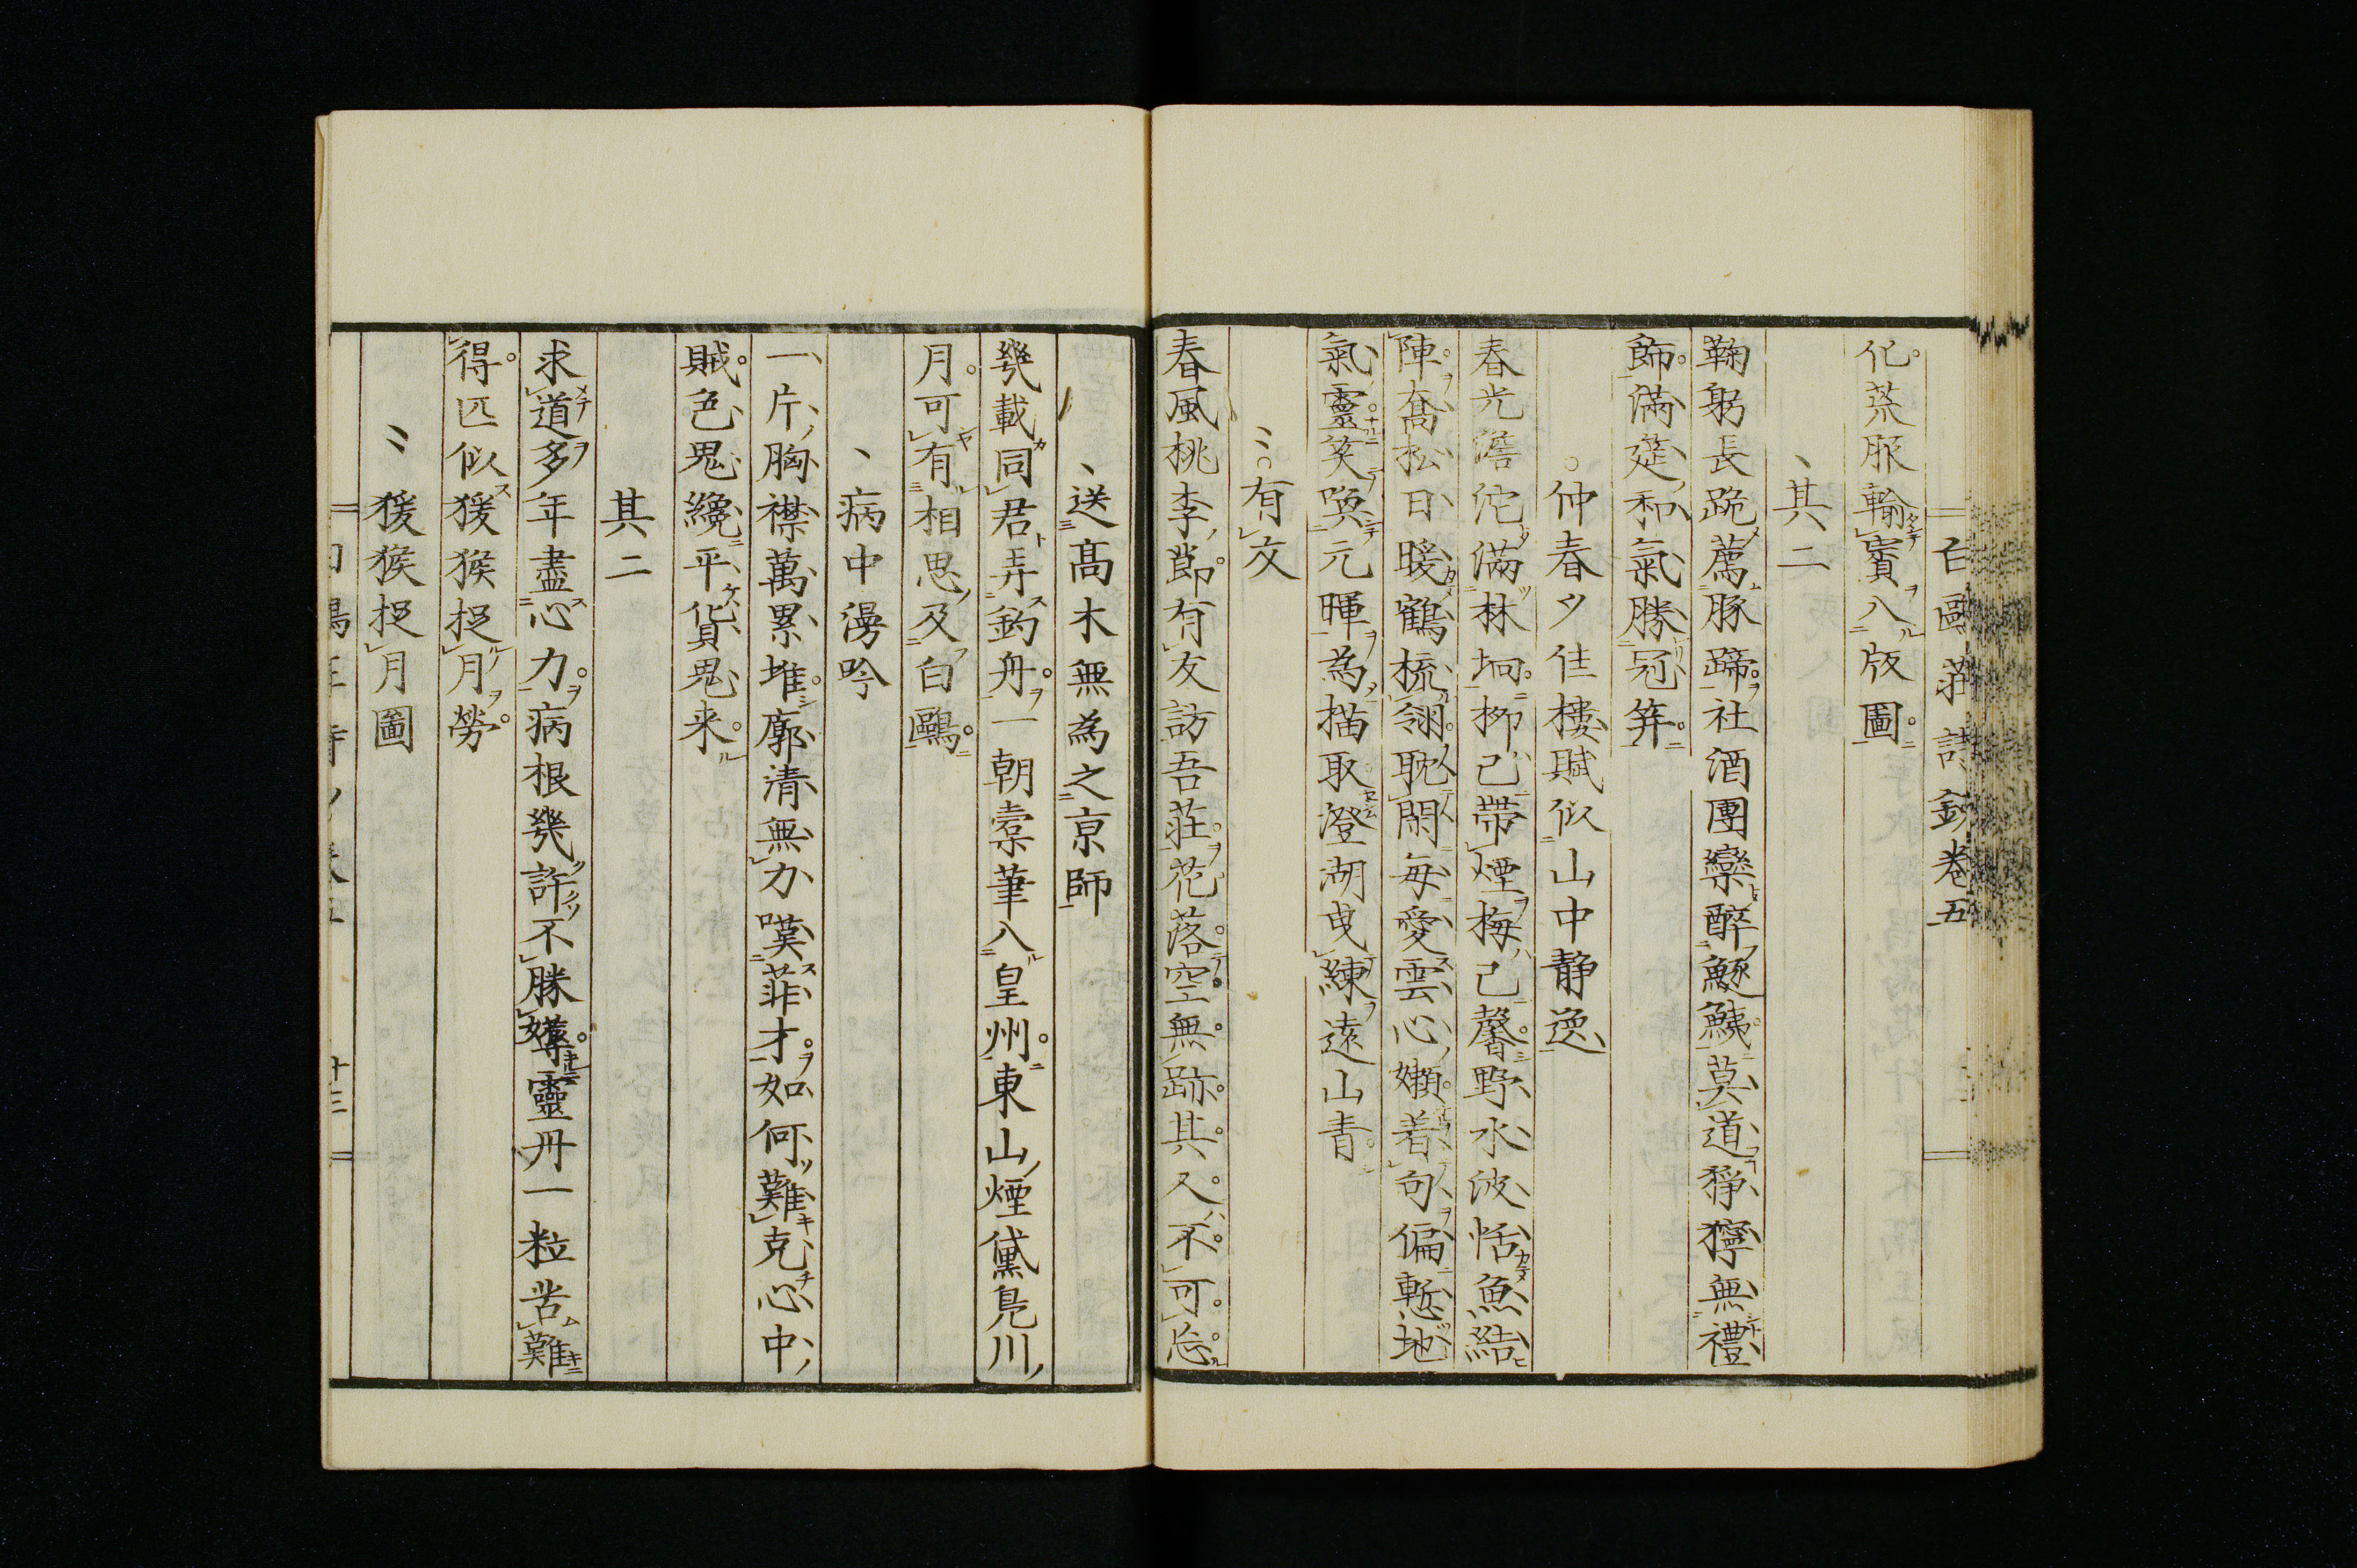 白鷗莊詩鈔卷五
化蒸服輸賓八版圖
其二
鞠躬長跪薦豚蹄社酒團欒醉鯸鮧莫道猙獰無禮
飾滿筵和氣勝冠笄
仲春夕佳樓賦似山中静逸
春光澹沱滿林坰栁已帶煙梅已馨野水波恬魚結
陣喬松日暖鶴梳翎耽閑每愛雲心嬾着句偏慙地
氣靈笑喚元暉為描取澄湖曳練遠山青
有友
春風桃李節有友訪吾莊花落空無跡其人不可忘
送髙木無為之京師
幾載同君弄釣舟一朝橐筆入皇州東山煙黛鳧川
月可有相思及白鷗
病中漫吟
一片胸襟萬累堆廓清無力嘆菲才如何難克心中
賊色鬼纔平貨鬼来
其二
求道多年盡心力病根幾許不勝嬈靈丹一粒苦難
得匹似猨猴捉月勞
猨猴捉月圖